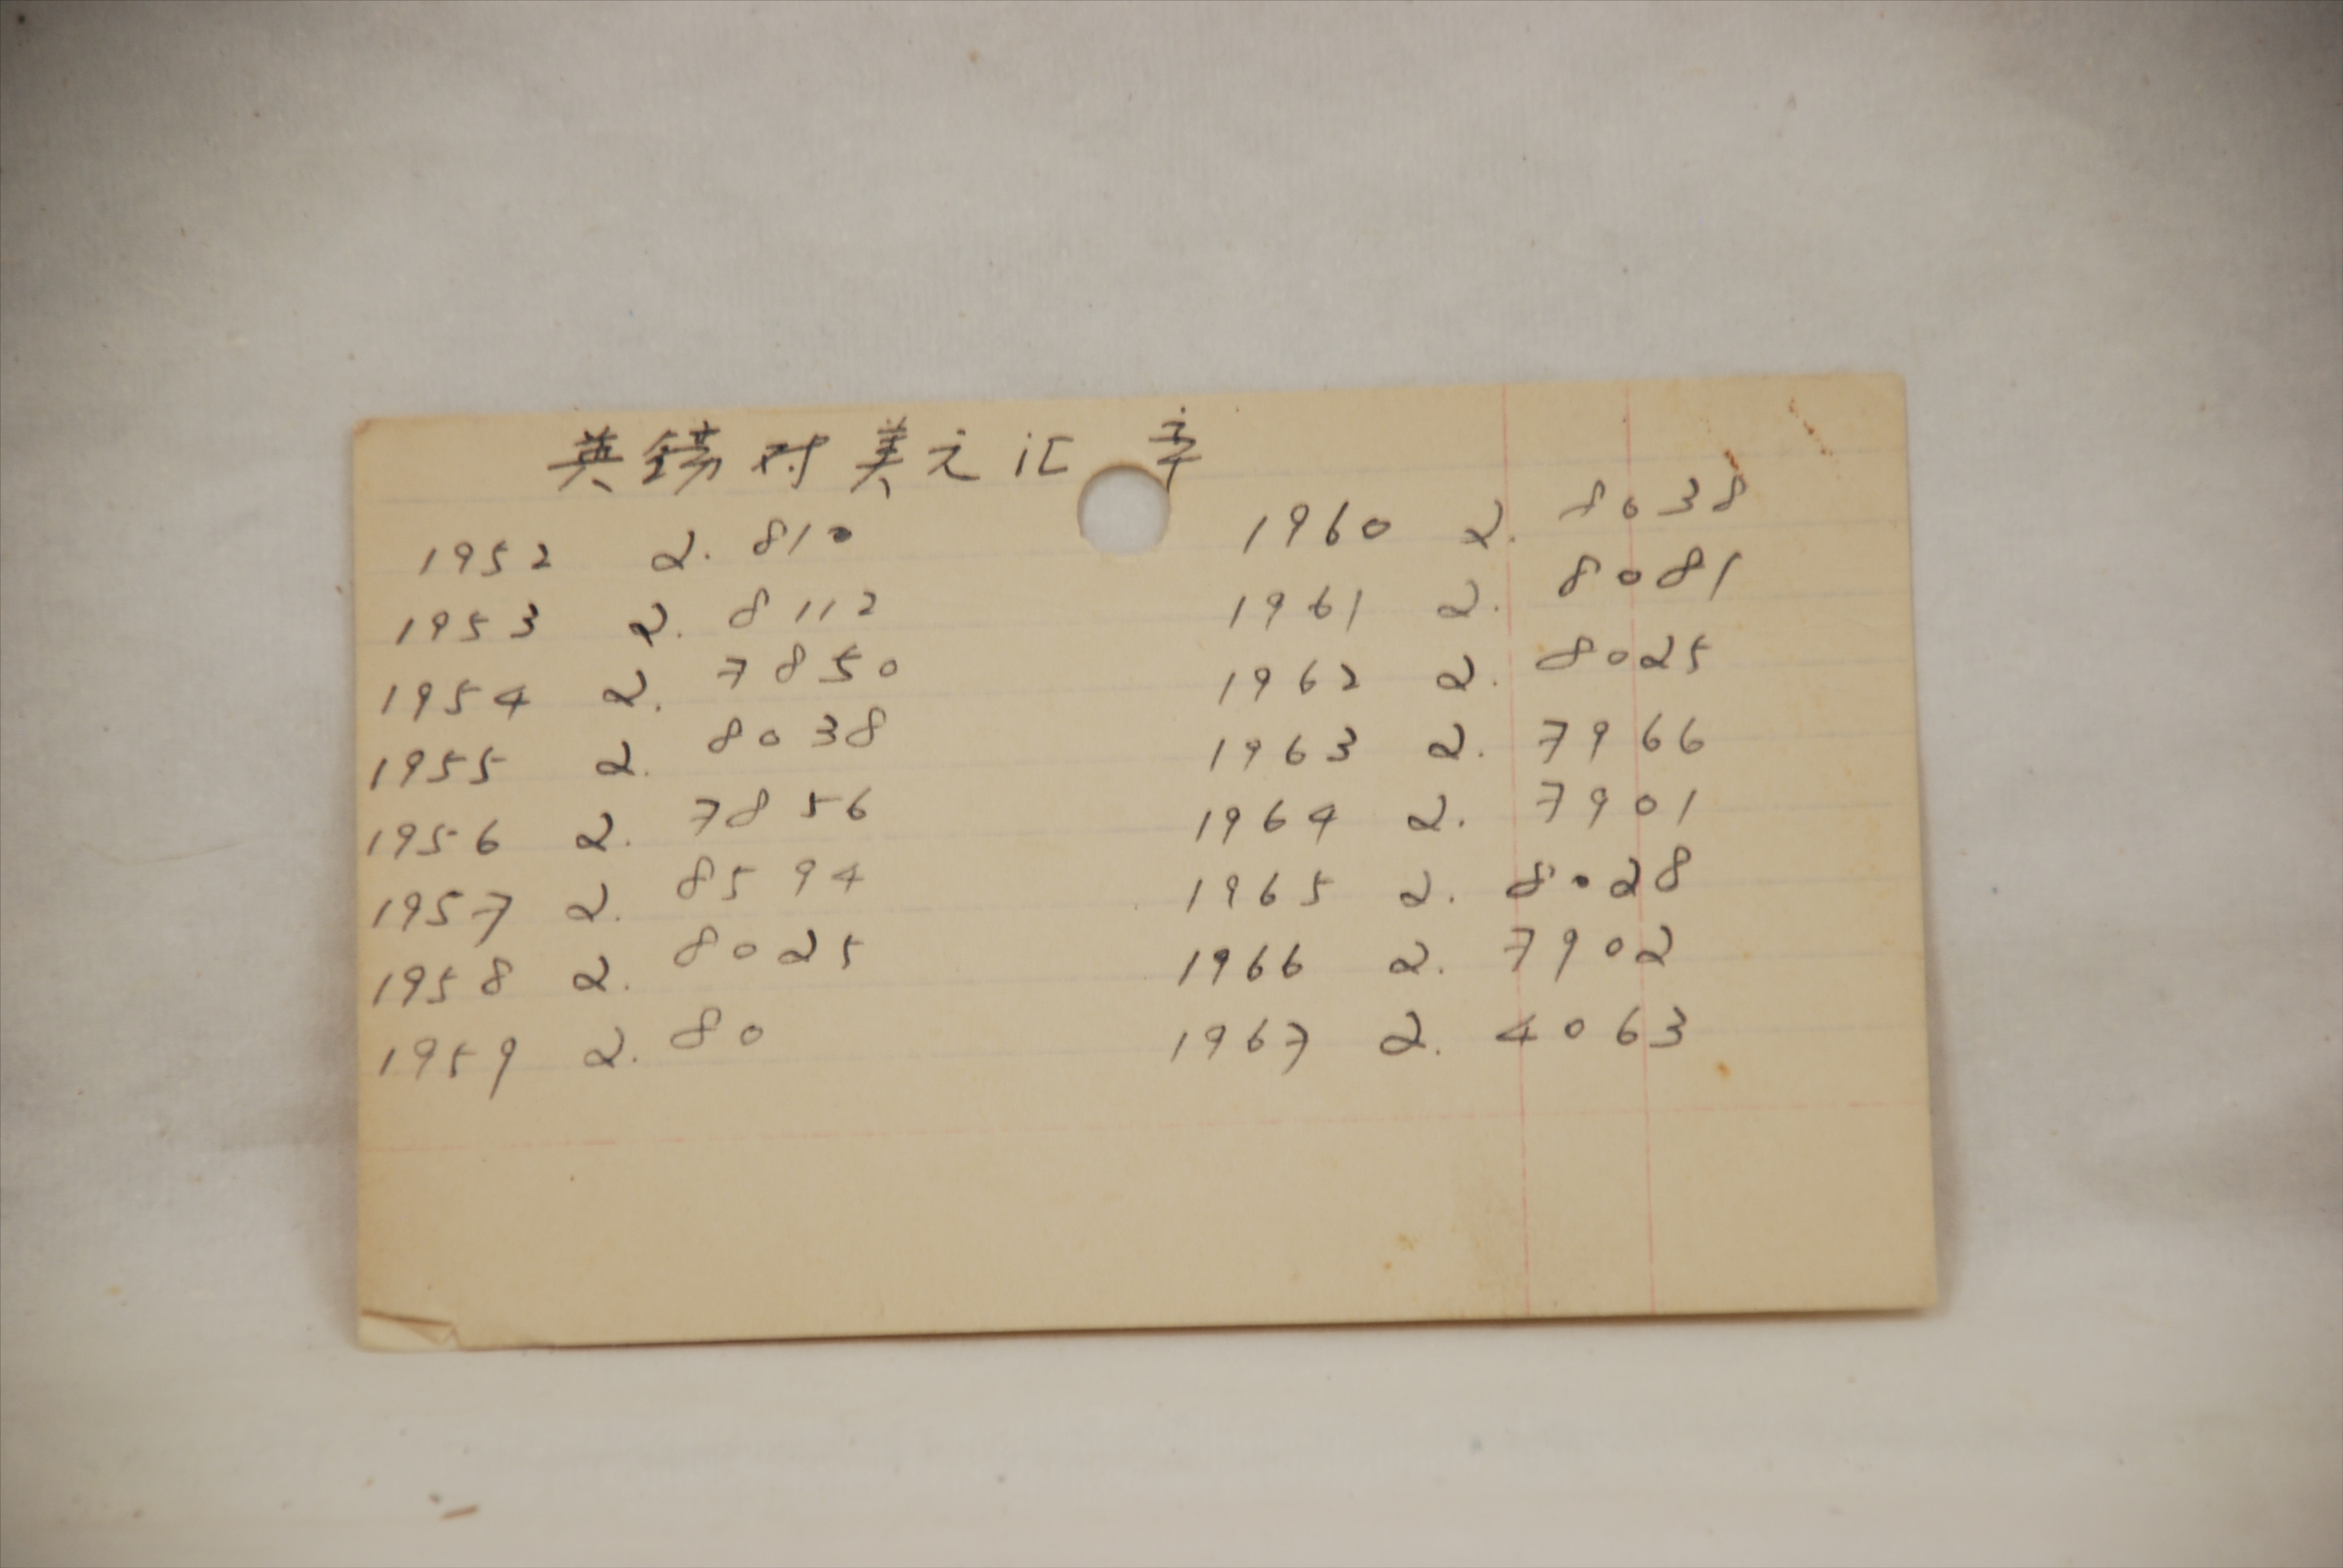 英镑对美元汇率
1952 2.810
1953 2.8112
1954 2.7850
1955 2.8038
1956 2.7856
1957 2.8594
1958 2.8025
1959 2.80
1960 2.8038
1961 2.8081
1962 2.8025
1963 2.7966
1964 2.7901
1965 2.8028
1966 2.7902
1967 2.4063